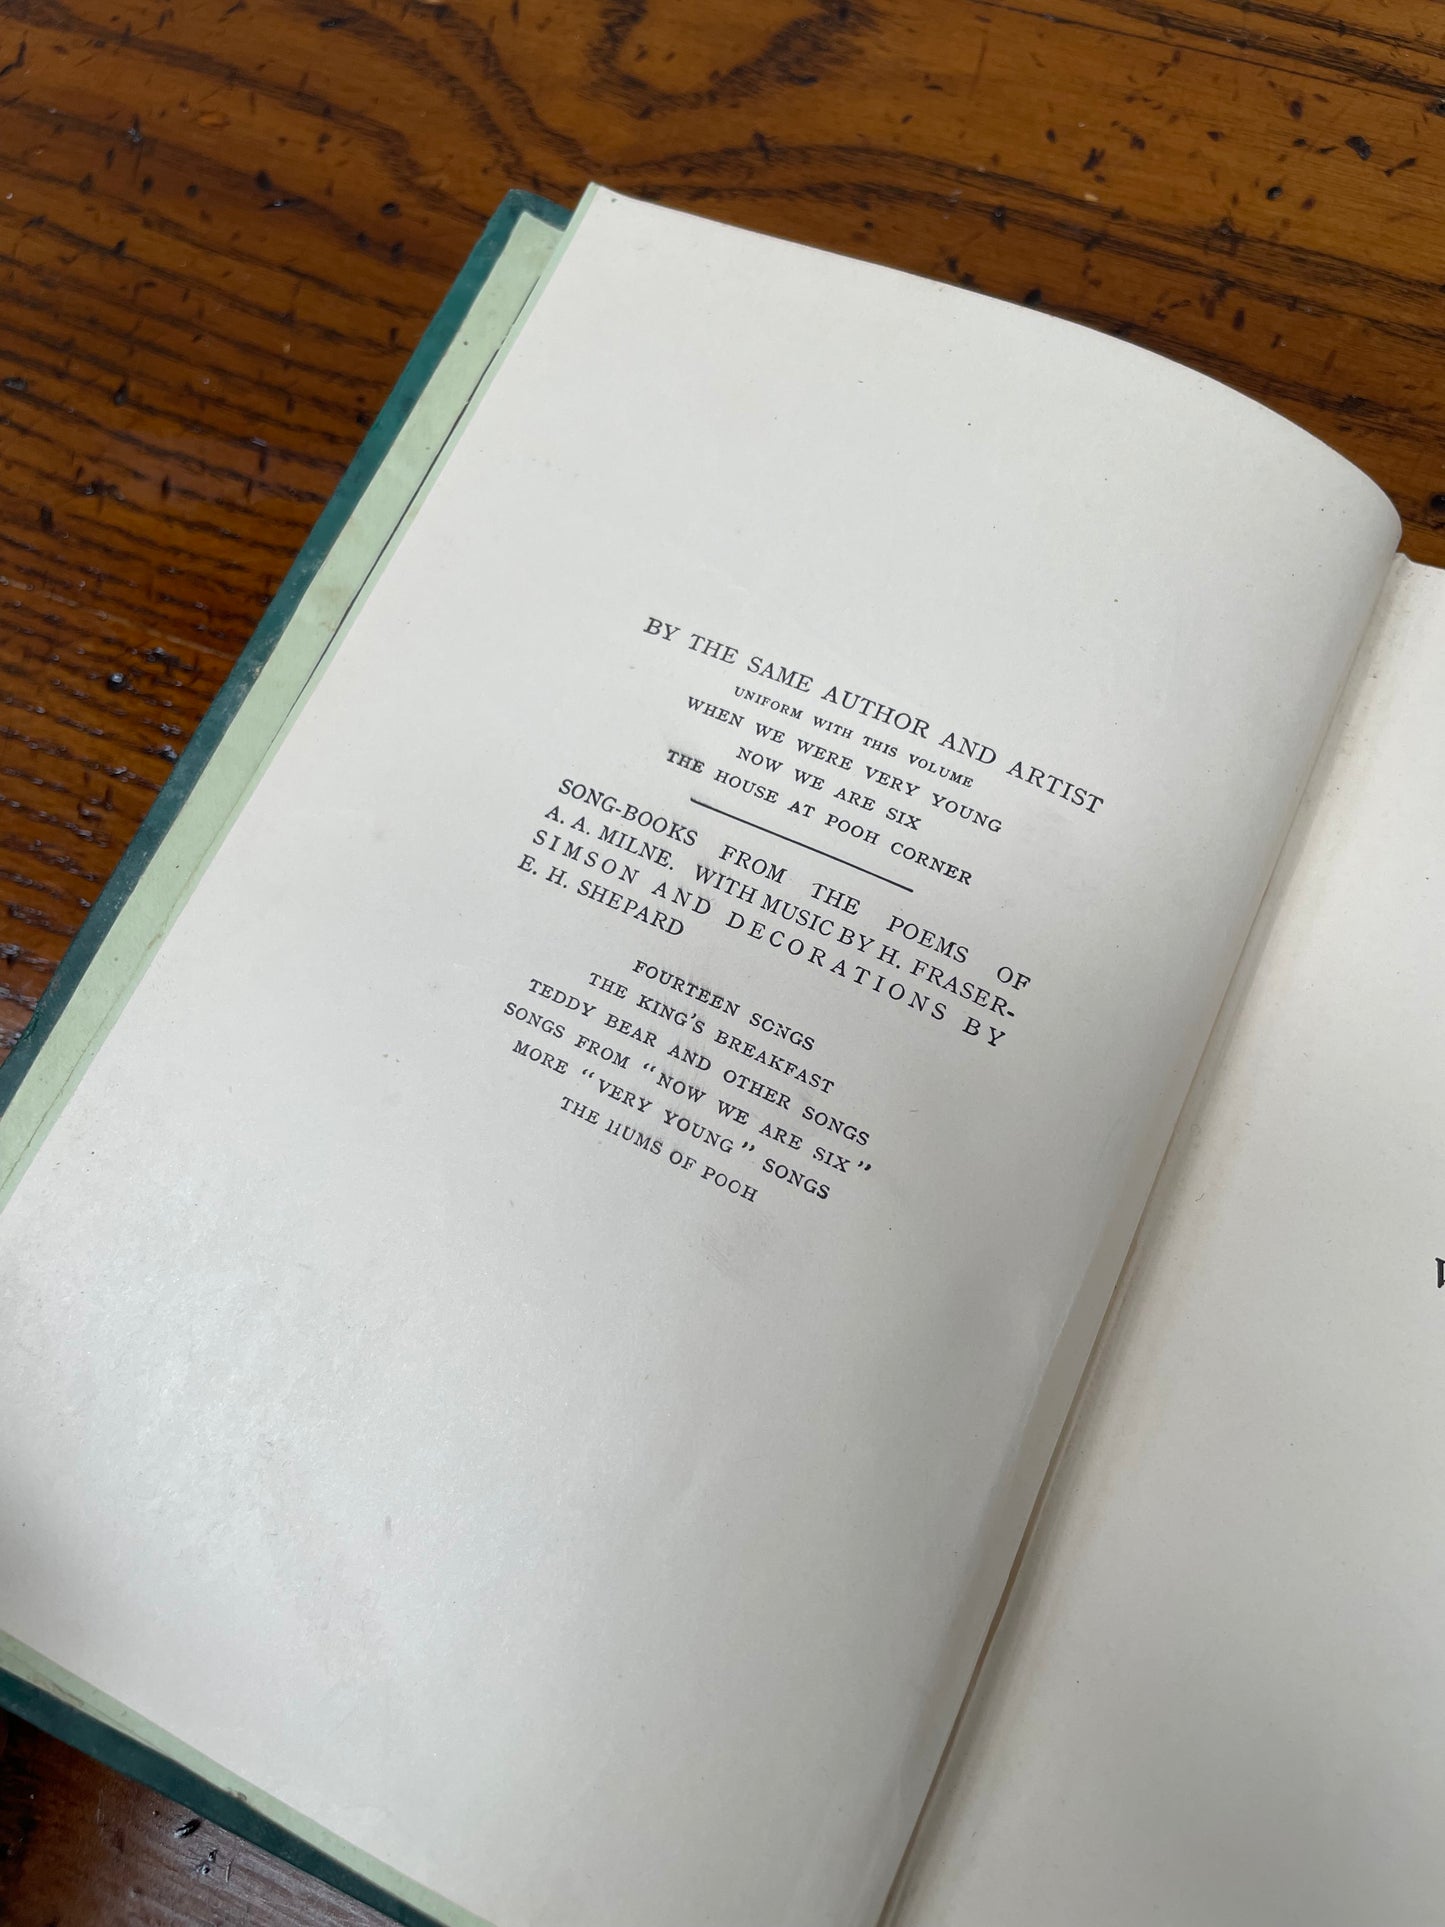 BY THE SAME AUTHOR AND ARTIST
UNIFORM WITH THIS VOLUME
WHEN WE WERE VERY YOUNG
NOW WE ARE SIX
THE HOUSE AT POOH CORNER
SONG-BOOKS FROM THE POEMS OF
A. A. MILNE. WITH MUSIC BY H. FRASER-
SIMSON AND DECORATIONS BY
E. H. SHEPARD
FOURTEEN SONGS
THE KING'S BREAKFAST
TEDDY BEAR AND OTHER SONGS
SONGS FROM "NOW WE ARE SIX"
MORE "VERY YOUNG" SONGS
THE HUMS OF POOH